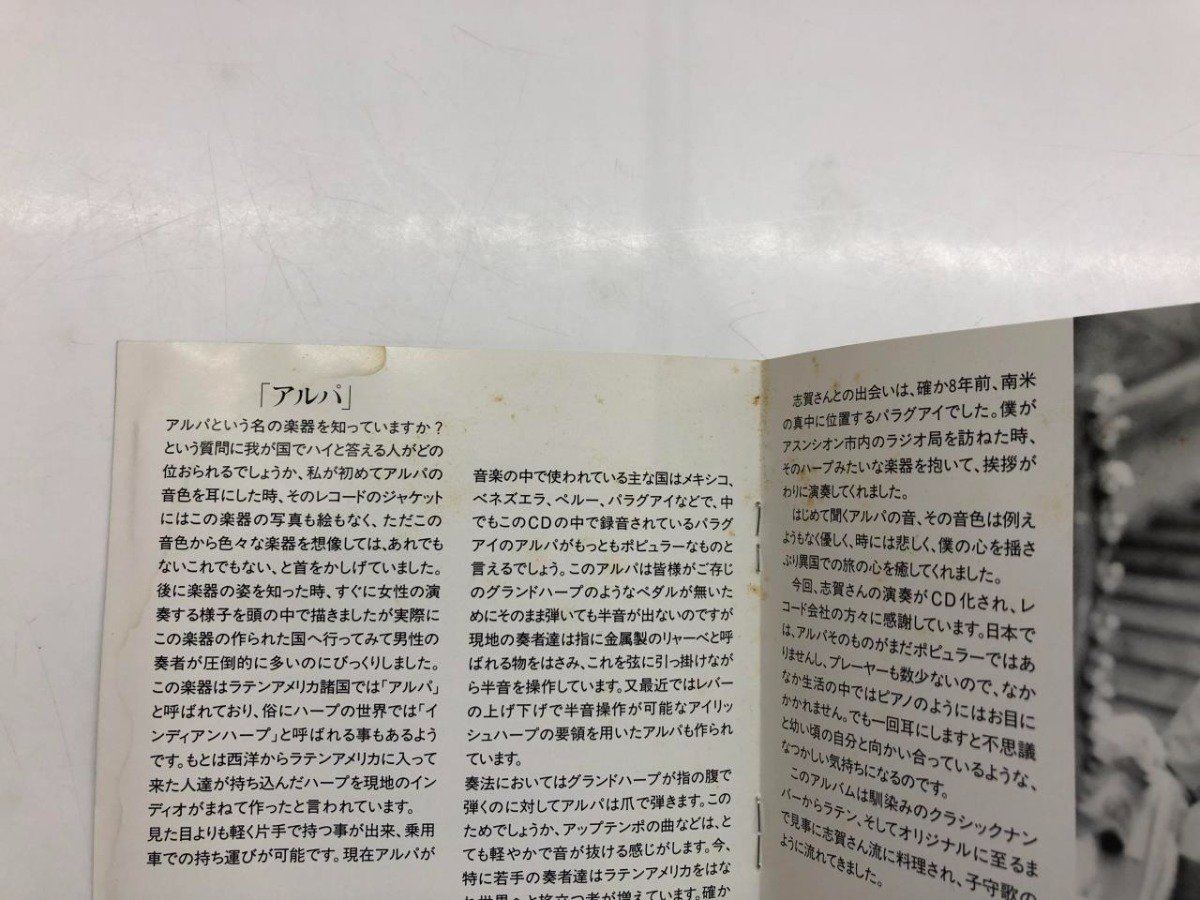 「アルパ」
アルパという名の楽器を知っていますか?
という質問に我が国でハイと答える人がどの
位おられるでしょうか、私が初めてアルパの
音色を耳にした時、そのレコードのジャケット
にはこの楽器の写真も絵もなく、ただこの
音色から色々な楽器を想像しては、あれでも
ないこれでもない、と首をかしげていました。
後に楽器の姿を知った時、すぐに女性の演
奏する様子を頭の中で描きましたが実際に
この楽器の作られた国へ行ってみて男性の
奏者が圧倒的に多いのにびっくりしました。
この楽器はラテンアメリカ諸国では「アルパ」
と呼ばれており、俗にハープの世界では「イ
ンディアンハープ」と呼ばれる事もあるよう
です。もとは西洋からラテンアメリカに入って
来た人達が持ち込んだハープを現地のイン
ディオがまねて作ったと言われています。
見た目よりも軽く片手で持つ事が出来、乗用
車での持ち運びが可能です。現在アルパが
音楽の中で使われている主な国はメキシコ、
ベネズエラ、ペルー、パラグアイなどで、中
でもこのCDの中で録音されているパラグ
アイのアルパがもっともポピュラーなものと
言えるでしょう。このアルパは皆様がご存じ
のグランドハープのようなペダルが無いた
めにそのまま弾いても半音が出ないのですが
現地の奏者達は指に金属製のリャーベと呼
ばれる物をはさみ、これを弦に引っ掛けなが
ら半音を操作しています。又最近ではレバー
の上げ下げで半音操作が可能なアイリッ
シュハープの要領を用いたアルパも作られ
ています。
奏法においてはグランドハープが指の腹で
弾くのに対してアルパは爪で弾きます。この
ためでしょうか、アップテンポの曲などは、と
ても軽やかで音が抜ける感じがします。今、
特に若手の奏者達はラテンアメリカをはな
れ世界へと旅立つ者が増えています。確か
志賀さんとの出会いは、確か8年前、南米
の真中に位置するパラグアイでした。僕が
アスンシオン市内のラジオ局を訪ねた時、
そのハープみたいな楽器を抱いて、挨拶が
わりに演奏してくれました。
はじめて聞くアルパの音、その音色は例え
ようもなく優しく、時には悲しく、僕の心を揺さ
ぶり異国での旅の心を癒してくれました。
今回、志賀さんの演奏がCD化され、レ
コード会社の方々に感謝しています。日本で
は、アルパそのものがまだポピュラーではあ
りませんし、プレーヤーも数少ないので、なか
なか生活の中ではピアノのようにはお目に
かかれません。でも一回耳にしますと不思議
と幼い頃の自分と向かい合っているような、
なつかしい気持ちになるのです。
このアルバムは馴染みのクラシックナン
バーからラテン、そしてオリジナルに至るま
で見事に志賀さん流に料理され、子守歌の
ように流れてきました。